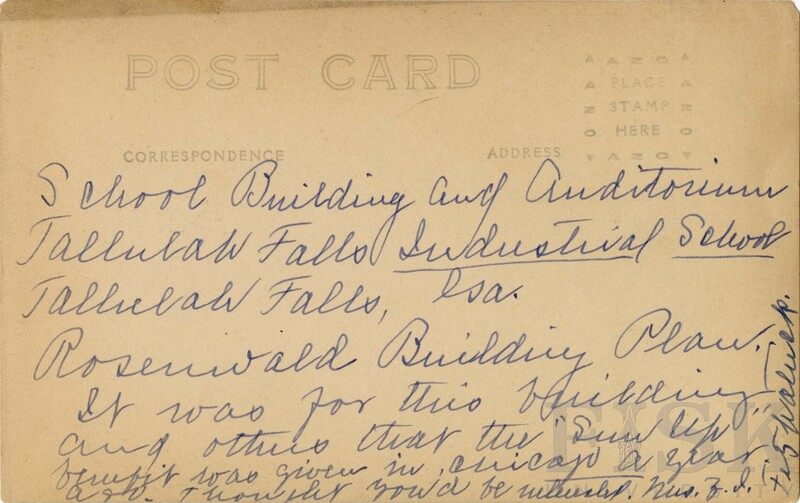 POST CARD
AZOA
PLACE
STAMP
HERE
AZOV
CORRESPONDENCE
ADDRESS
School Building and Auditorium
Tallulah Falls Industrial School
Tallulah Falls, Ga.
Rosenwald Building Plan.
It was for this building
and others that the "Sun Up"
benefit was given in Chicago a year
ago. Thought you'd be interested. Mrs. Z. I.
FISK